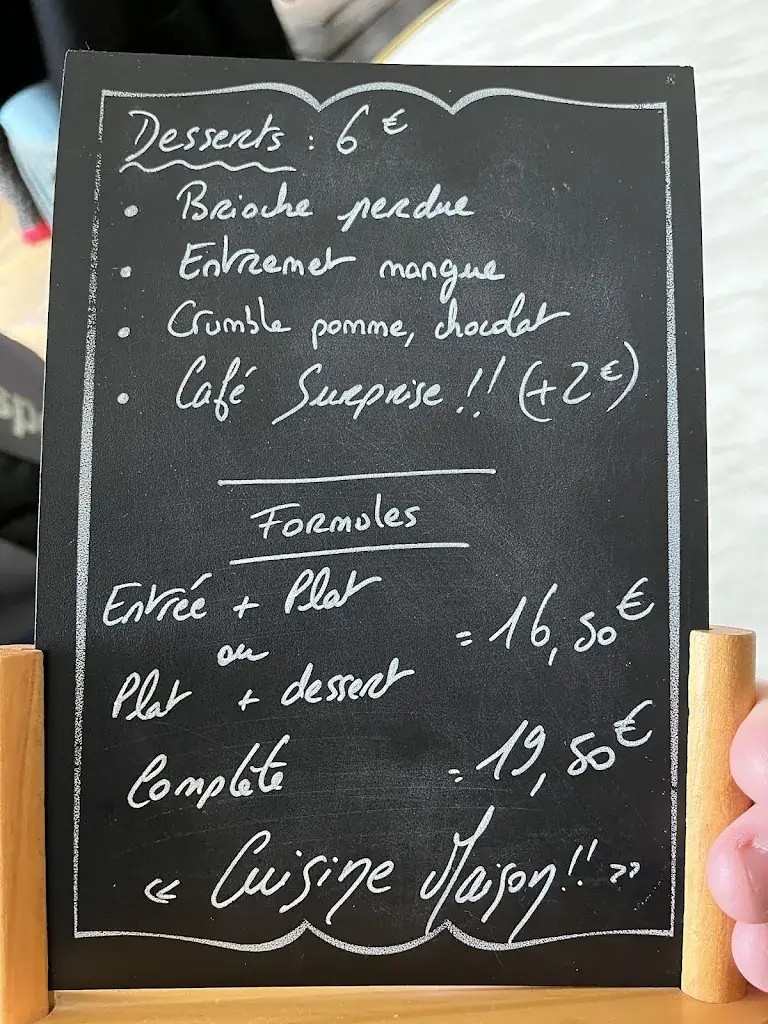 Desserts : 6 €
• Brioche perdue
• Entremet mangue
• Crumble pomme, chocolat
• Café Surprise !! (+2€)
Formules
Entrée + Plat
ou
= 16,50€
Plat + dessert
Complète = 19,50€
« Cuisine Maison!! »